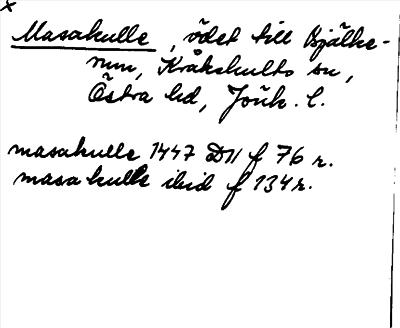 x
Masakulle, ödet till Bjälke-
rum, Kråkshults sn,
Östra hd, Jönk. l.
masakulle 1447 D11 f 76 r.
masakulle ibid f 134 r.